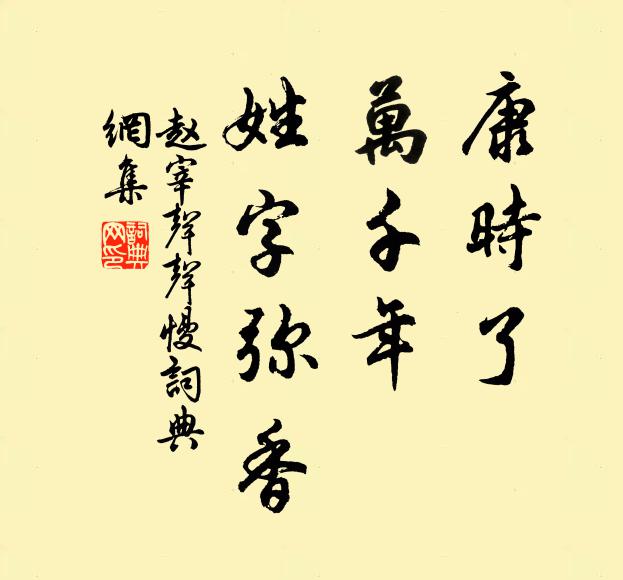 康時了
萬千年
姓字弥香
赵宰聲聲慢詞典
網集
詞典
网印